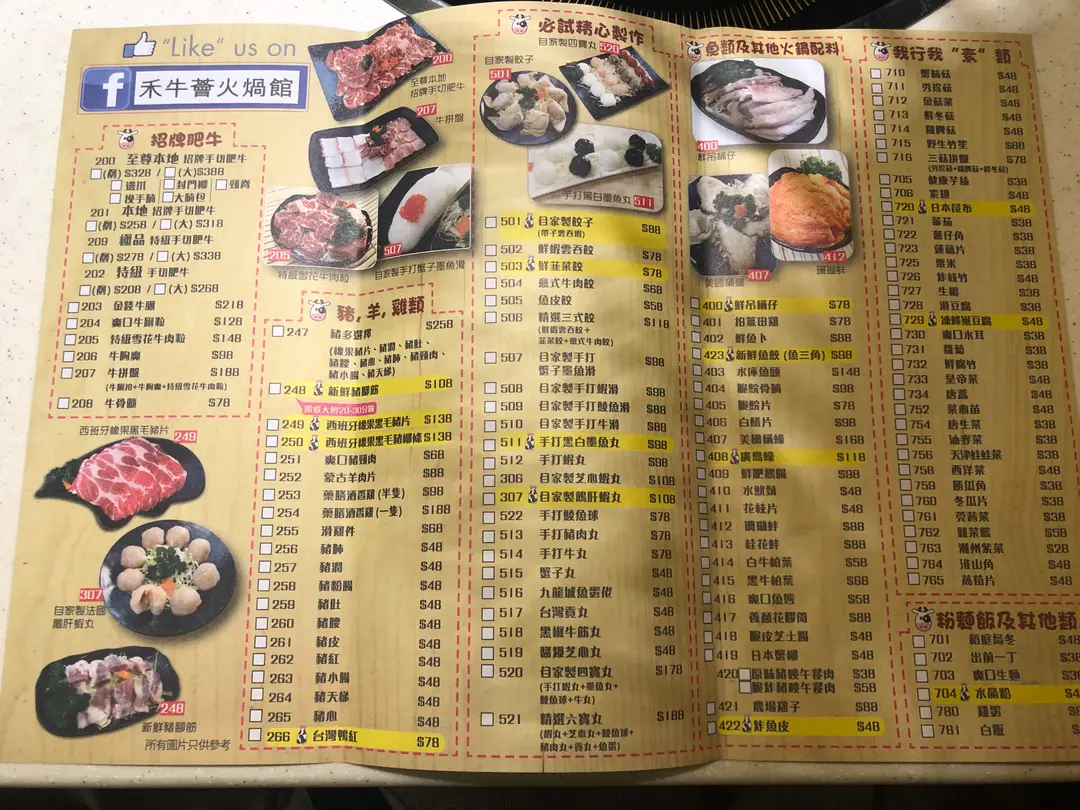 "Like" us on
f 禾牛薈火焗館
招牌肥牛
200 至尊本地 招牌手切肥牛
(例) $328 / (大)$388
邊爪 封門柳 頸脊
挽手腩 大腩包
201 本地 招牌手切肥牛
(例) $258 / (大) $318
209 極品 特級手切肥牛
(例) $278 / (大) $338
202 特級 手切肥牛
(例) $208 / (大) $268
203 金錢牛𦟌 $218
204 爽口牛脷粒 $128
205 特級雪花牛肉粒 $148
206 牛胸爽 $98
207 牛拼盤 $188
208 牛骨髓 $78
西班牙橡果黑毛豬片 249
307
自家製法國
鵝肝蝦丸
248
新鮮豬腳筋
所有圖片只供參考
200
至尊本地
招牌手切肥牛
207
牛拼盤
205
特級雪花牛肉粒
507
自家製手打蟹子墨魚滑
豬, 羊, 雞類
247 豬多選擇 $258
(橡果豬片、豬潤、豬肚、
豬腰、豬心、豬肺、豬頸肉、
豬小腸、豬天梯)
248 新鮮豬腳筋 $108
需煮大約20-30分鐘
249 西班牙橡果黑毛豬片 $138
250 西班牙橡果黑毛豬柳條 $138
251 爽口豬頸肉 $68
252 蒙古羊肉片 $88
253 藥膳酒香雞 (半隻) $98
254 藥膳酒香雞 (一隻) $188
255 滑雞件 $68
256 豬肺 $48
257 豬潤 $48
258 豬粉腸 $48
259 豬肚 $48
260 豬腰 $48
261 豬皮 $48
262 豬紅 $48
263 豬小腸 $48
264 豬天梯 $48
265 豬心 $48
266 台灣鴨紅 $78
必試精心製作
自家製四寶丸 520
自家製餃子
501
手打黑白墨魚丸 511
501 自家製餃子 $88
(帶子雲吞蝦)
502 鮮蝦雲吞餃 $78
503 鮮韮菜餃 $78
504 意式牛肉餃 $68
505 魚皮餃 $58
506 精選三式餃 $118
(鮮蝦雲吞餃+
韮菜餃+意式牛肉餃)
507 自家製手打 $98
蟹子墨魚滑
508 自家製手打蝦滑 $98
509 自家製手打鯪魚滑 $88
510 自家製手打牛滑 $88
511 手打黑白墨魚丸 $98
512 手打蝦丸 $98
306 自家製芝心蝦丸 $108
307 自家製鵝肝蝦丸 $108
522 手打鯪魚球 $78
513 手打豬肉丸 $78
514 手打牛丸 $78
515 蟹子丸 $48
516 九龍城魚蛋佬 $48
517 台灣貢丸 $48
518 黑椒牛筋丸 $48
519 醬爆芝心丸 $48
520 自家製四寶丸 $178
(手打蝦丸+墨魚丸+
鯪魚球+牛丸)
521 精選六寶丸 $188
(蝦丸+芝心丸+鯪魚球+
豬肉丸+貢丸+魚蛋)
魚類及其他火鍋配料
400
鮮吊桶仔
407
美國桶蠔
412
珊瑚蚌
400 鮮吊桶仔 $78
401 拍薑田雞 $78
402 鮮魚卜 $88
423 新鮮魚餃 (魚三角) $98
403 水庫魚頭 $148
404 脆鯇骨腩 $98
405 脆鯇片 $78
406 白鱔片 $98
407 美國桶蠔 $168
408 廣島蠔 $118
409 鮮肥鵝腸 $98
410 水魷鬚 $48
411 花枝片 $48
412 珊瑚蚌 $88
413 桂花蚌 $88
414 白牛柏葉 $58
415 黑牛柏葉 $68
416 爽口魚唇 $58
417 養顏花膠筒 $88
418 脆皮芝士腸 $48
419 日本蟹柳 $48
420 原味豬朥午餐肉 $38
脆炸豬朥午餐肉 $58
421 農場雞子 $88
422 炸魚皮 $48
我行我 "素" 類
710 蟹味菇 $48
711 秀珍菇 $48
712 魚菇菜 $48
713 鮮冬菇 $48
714 雞髀菇 $48
715 野生竹笙 $88
716 三菇拼盤 $78
(秀珍菇+雞髀菇+鮮冬菇)
705 健康芋絲 $38
706 素翅 $38
720 日本昆布 $48
721 蕃茄 $38
722 薯仔角 $38
723 蓮藕片 $38
725 粟米 $38
726 炸枝竹 $48
727 生根 $38
728 滑豆腐 $38
729 凍鮮滋豆腐 $48
730 爽口木耳 $38
731 蘿蔔 $38
732 鮮腐竹 $38
733 皇帝菜 $48
734 唐蒿 $48
752 菜心苗 $48
754 唐生菜 $38
755 油麥菜 $38
756 天津娃娃菜 $38
758 西洋菜 $48
759 勝瓜角 $38
760 冬瓜片 $38
761 莞茜菜 $38
762 雜菜籃 $58
763 潮州紫菜 $28
764 淮山角 $48
765 萵筍片 $48
粉麵飯及其他類
701 稻庭烏冬
702 出前一丁
703 爽口生麵
704 水晶粉
780 雞蛋
781 白飯